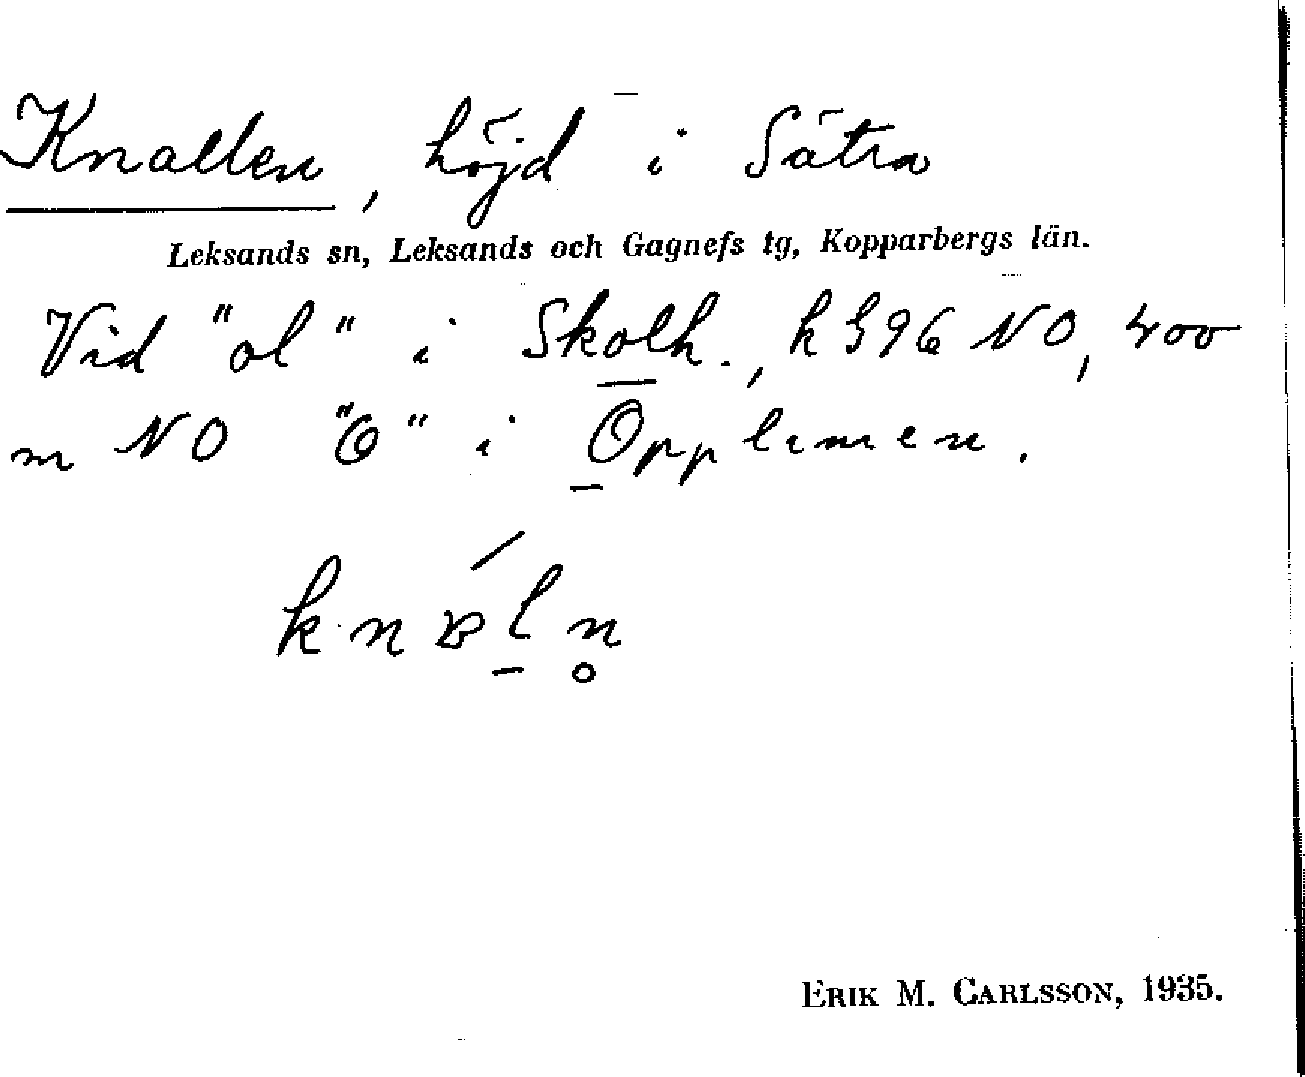 Knallen, höjd i Sätra
Leksands sn, Leksands och Gagnefs tg, Kopparbergs län.
Vid "ol" i Skolh., k 396 NO, 400
m NO "O" i Opplimen.
ERIK M. CARLSSON, 1935.